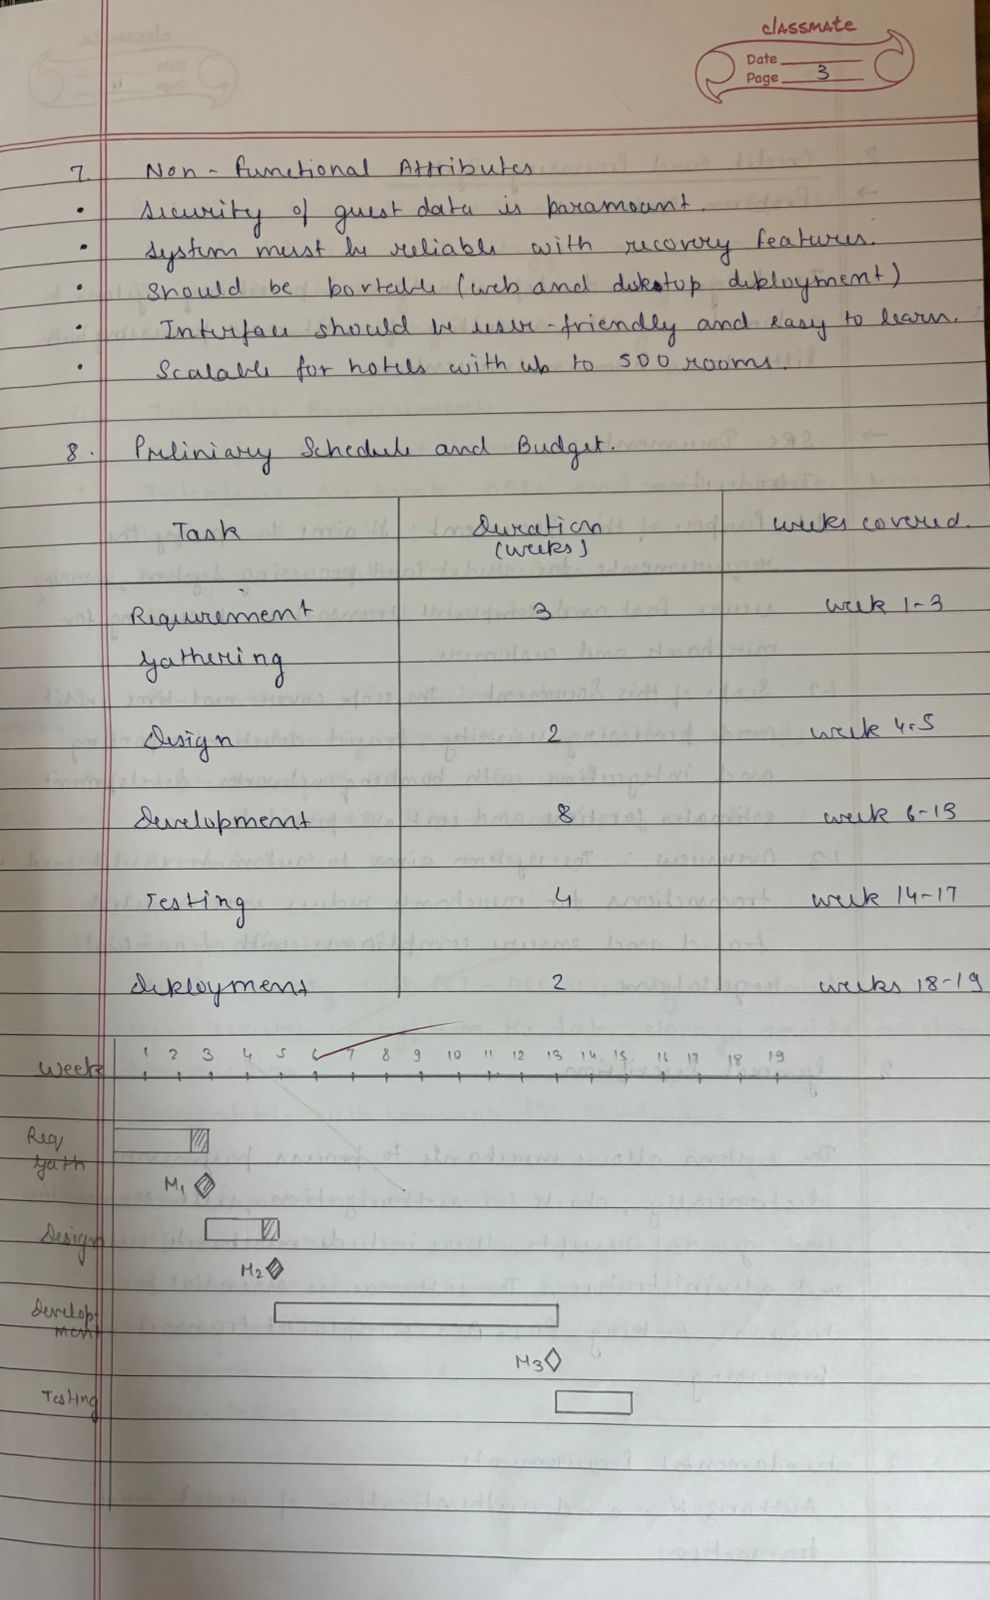 classmate
Date
Page 3
7. Non-Functional Attributes
• Security of guest data is paramount.
• System must be reliable with recovery features.
• Should be portable (web and dekstop deployment)
• Interface should be user-friendly and easy to learn.
• Scalable for hotels with up to 500 rooms.
8. Preliniary Schedule and Budget.
Task Duration (weeks) weeks covered.
Requirement gathering 3 week 1-3
Design 2 week 4-5
Development 8 week 6-13
Testing 4 week 14-17
deployment 2 weeks 18-19
Week 1 2 3 4 5 6 7 8 9 10 11 12 13 14 15 16 17 18 19
Req
gath
M1
Design
M2
Develop-
ment
M3
Testing